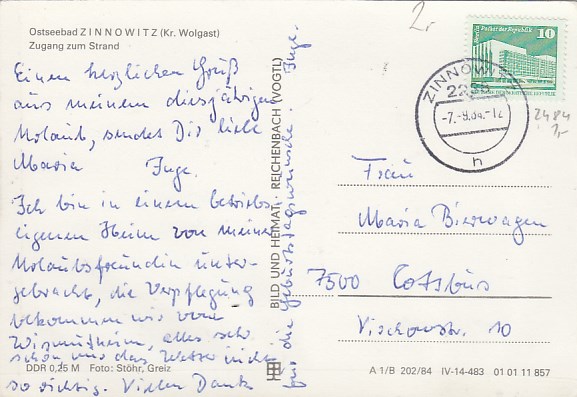 Ostseebad ZINNOWITZ (Kr. Wolgast)
Zugang zum Strand
Einen herzlichen Gruß
aus meinem diesjährigen
Urlaub, sendet Dir liebe
Maria Inge.
Ich bin in einem betriebs
eigenen Heim von meiner
Urlaubsfreundin unter-
gebracht, die Verpflegung
bekommen wir vom
Wismutheim, alles sehr
schön und das Wetter nicht
so richtig. Vielen Dank
für die Geburtstagswünsche. Inge.
BILD UND HEIMAT, REICHENBACH (VOGTL)
DDR 0,25 M Foto: Stöhr, Greiz
2,-
Palast der Republik
10
ZINNOWITZ
-7.-9.84.-12
h
2484
1,-
Frau
Maria Bierwagen
7500 Cottbus
10
A 1/B 202/84 IV-14-483 01 01 11 857